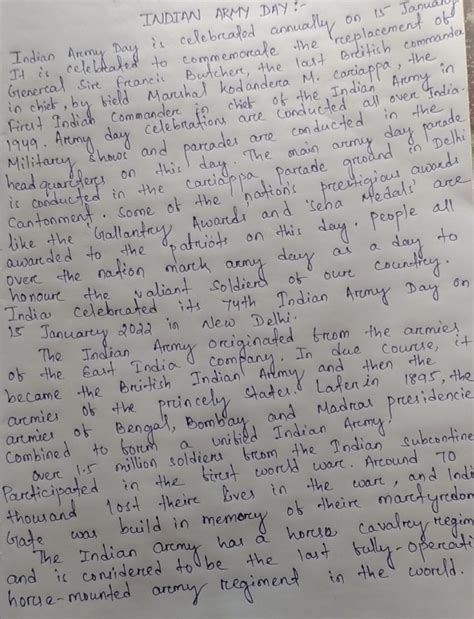 INDIAN ARMY DAY :-
Indian Army Day is celebrated annually on 15 January
It is celebrated to commemorate the rreplacement of
General Sir Francis Butcherc, the last Breitish commander
in chief, by field Marshal kodandera M. cariappa, the
first Indian commander in chief of the Indian Army in
1949. Army day celebrations are conducted all over India.
Military shows and parades are conducted in the
headquarters on this day. The main army day parade
is conducted in the cariappa parade ground in Delhi
Cantonment. Some of the nation's prestigious awards
like the 'Gallantry Awards and 'Sena Medals' are
awarded to the patriots on this day. people all
over the nation mark army day as a day to
honour the valiant Soldiers of our country.
India celebrated its 74th Indian Army Day on
15 January 2022 in New Delhi.
The Indian Army originated from the armies
of the East India Company. In due course, it
became the British Indian Army and then the
armies of the princely states. Later in 1895, the
armies of Bengal, Bombay and Madras presidencie
combined to form a unified Indian Army.
Over 1.5 million soldiers from the Indian subcontine
Participated in the first world war. Around 70
thousand lost their lives in the war, and Indi
Gate was build in memory of their martyrdom
The Indian army has a horse cavalry regim
and is considered to be the last fully-operati
horse-mounted army regiment in the world.